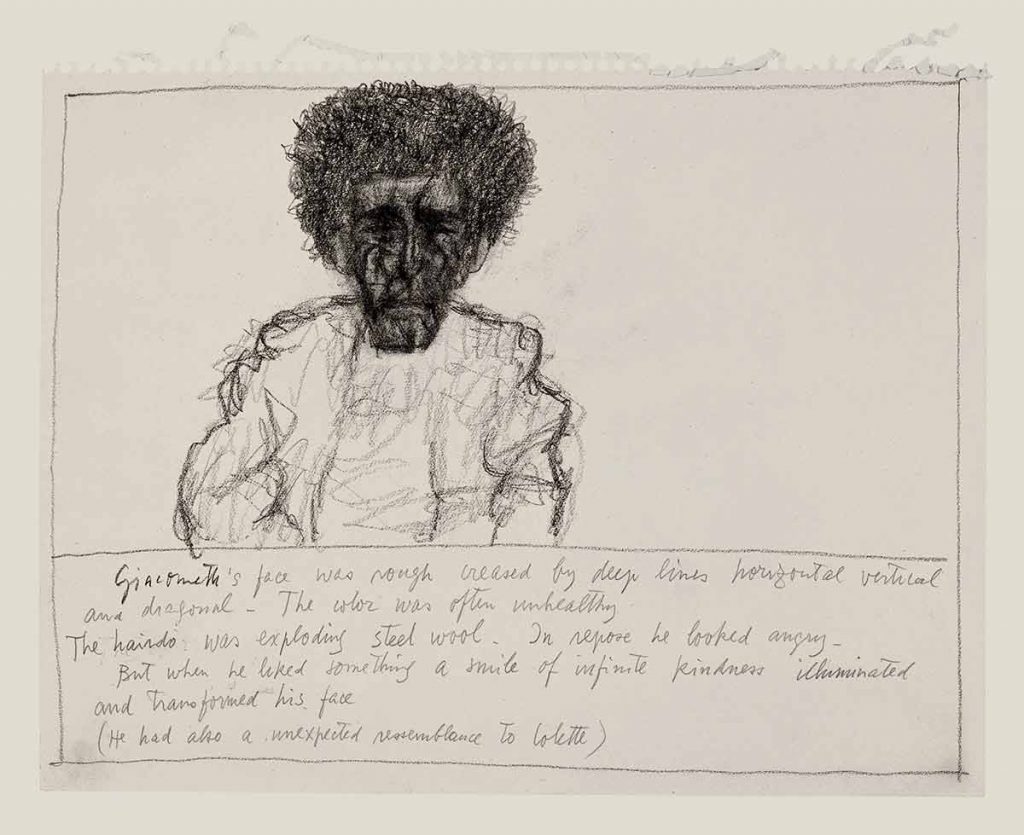 Giacometti's face was rough creased by deep lines horizontal vertical
and diagonal – The color was often unhealthy.
The hairdo: was exploding steel wool – In repose he looked angry –
But when he liked something a smile of infinite kindness illuminated
and transformed his face
(He had also a unexpected ressemblance to Colette)